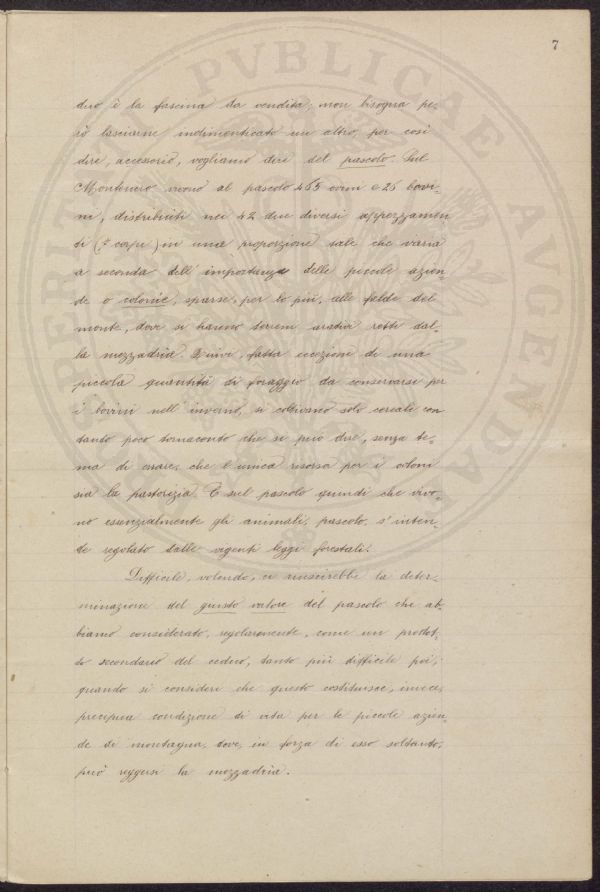 7
duo è la fascina da vendita, non bisogna pe-
rò lasciarne indimenticato un altro, per così
dire, accessorio, vogliamo dire del pascolo. Sul
Montenero vivono al pascolo 465 ovini e 25 bovi-
ni, distribuiti nei 42 due diversi appezzamen
ti (° corpi) in una proporzione tale che varia
a seconda dell'importanza delle piccole azien-
de o colonie, sparse, per lo più, alle falde del
monte, dove si hanno terreni arativi retti dal-
la mezzadria. Quivi, fatta eccezione di una
piccola quantità di foraggio da conservarsi per
i bovini nell'inverno, si coltivano solo cereali con
tanto poco tornaconto che si può dire, senza te-
ma di errare, che l'unica risorsa per i coloni
sia la pastorizia. È sul pascolo quindi che vivo-
no essenzialmente gli animali, pascolo, s'inten-
de regolato dalle vigenti leggi forestali.
Difficile, volendo, ci riuscirebbe la deter-
minazione del giusto valore del pascolo che ab-
biamo considerato, regolarmente, come un prodot-
to secondario del ceduo, tanto più difficile poi,
quando si consideri che questo costituisce, invece,
precipua condizione di vita per le piccole azien-
de di montagna, dove, in forza di esso soltanto,
può reggersi la mezzadria.
PVBLICAE
AVGENDAE